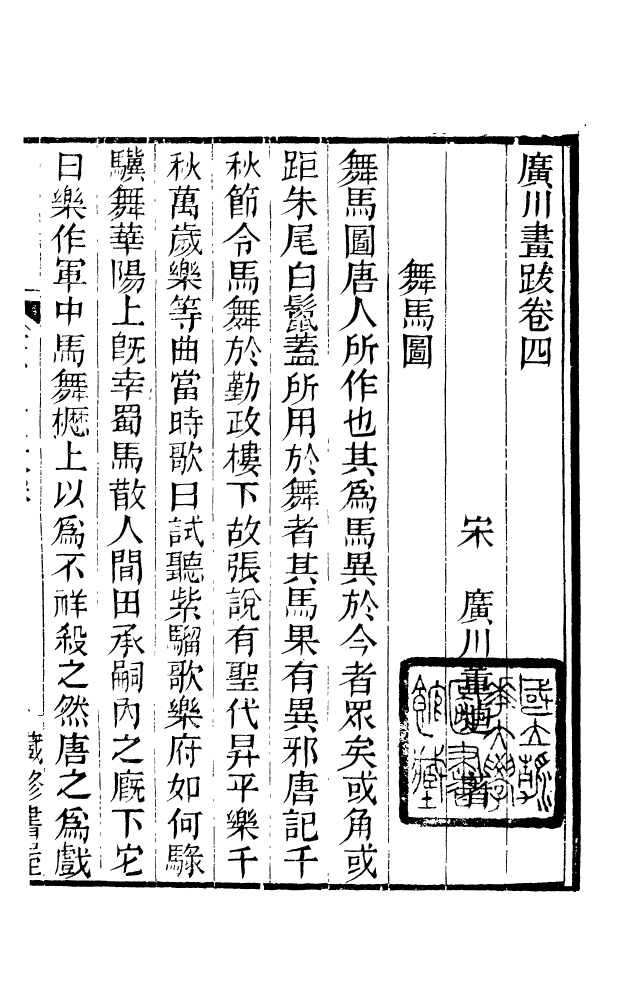 廣川畫跋卷四
宋　廣川董逌著
舞馬圖
舞馬圖唐人所作也其爲馬異於今者眾矣或角或
距朱尾白鬛蓋所用於舞者其馬果有異邪唐記千
秋節令馬舞於勤政樓下故張說有聖代昇平樂千
秋萬歲樂等曲當時歌曰試聽紫騮歌樂府如何騄
驥舞華陽上旣幸蜀馬散人間田承嗣內之廐下它
日樂作軍中馬舞櫪上以爲不祥殺之然唐之爲戲
藏修書屋
國立清華大學圖書館藏